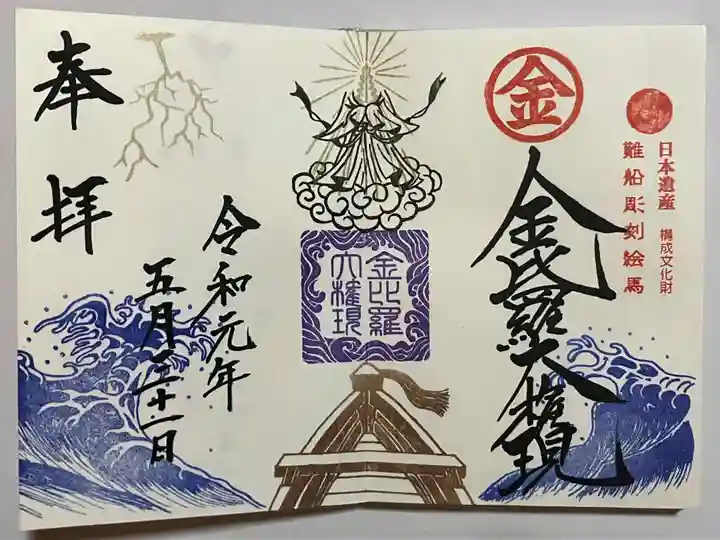 金
日本遺産 構成文化財
難船彫刻絵馬
金毘羅大権現
金比羅
大権現
奉拝
令和元年
五月三十一日